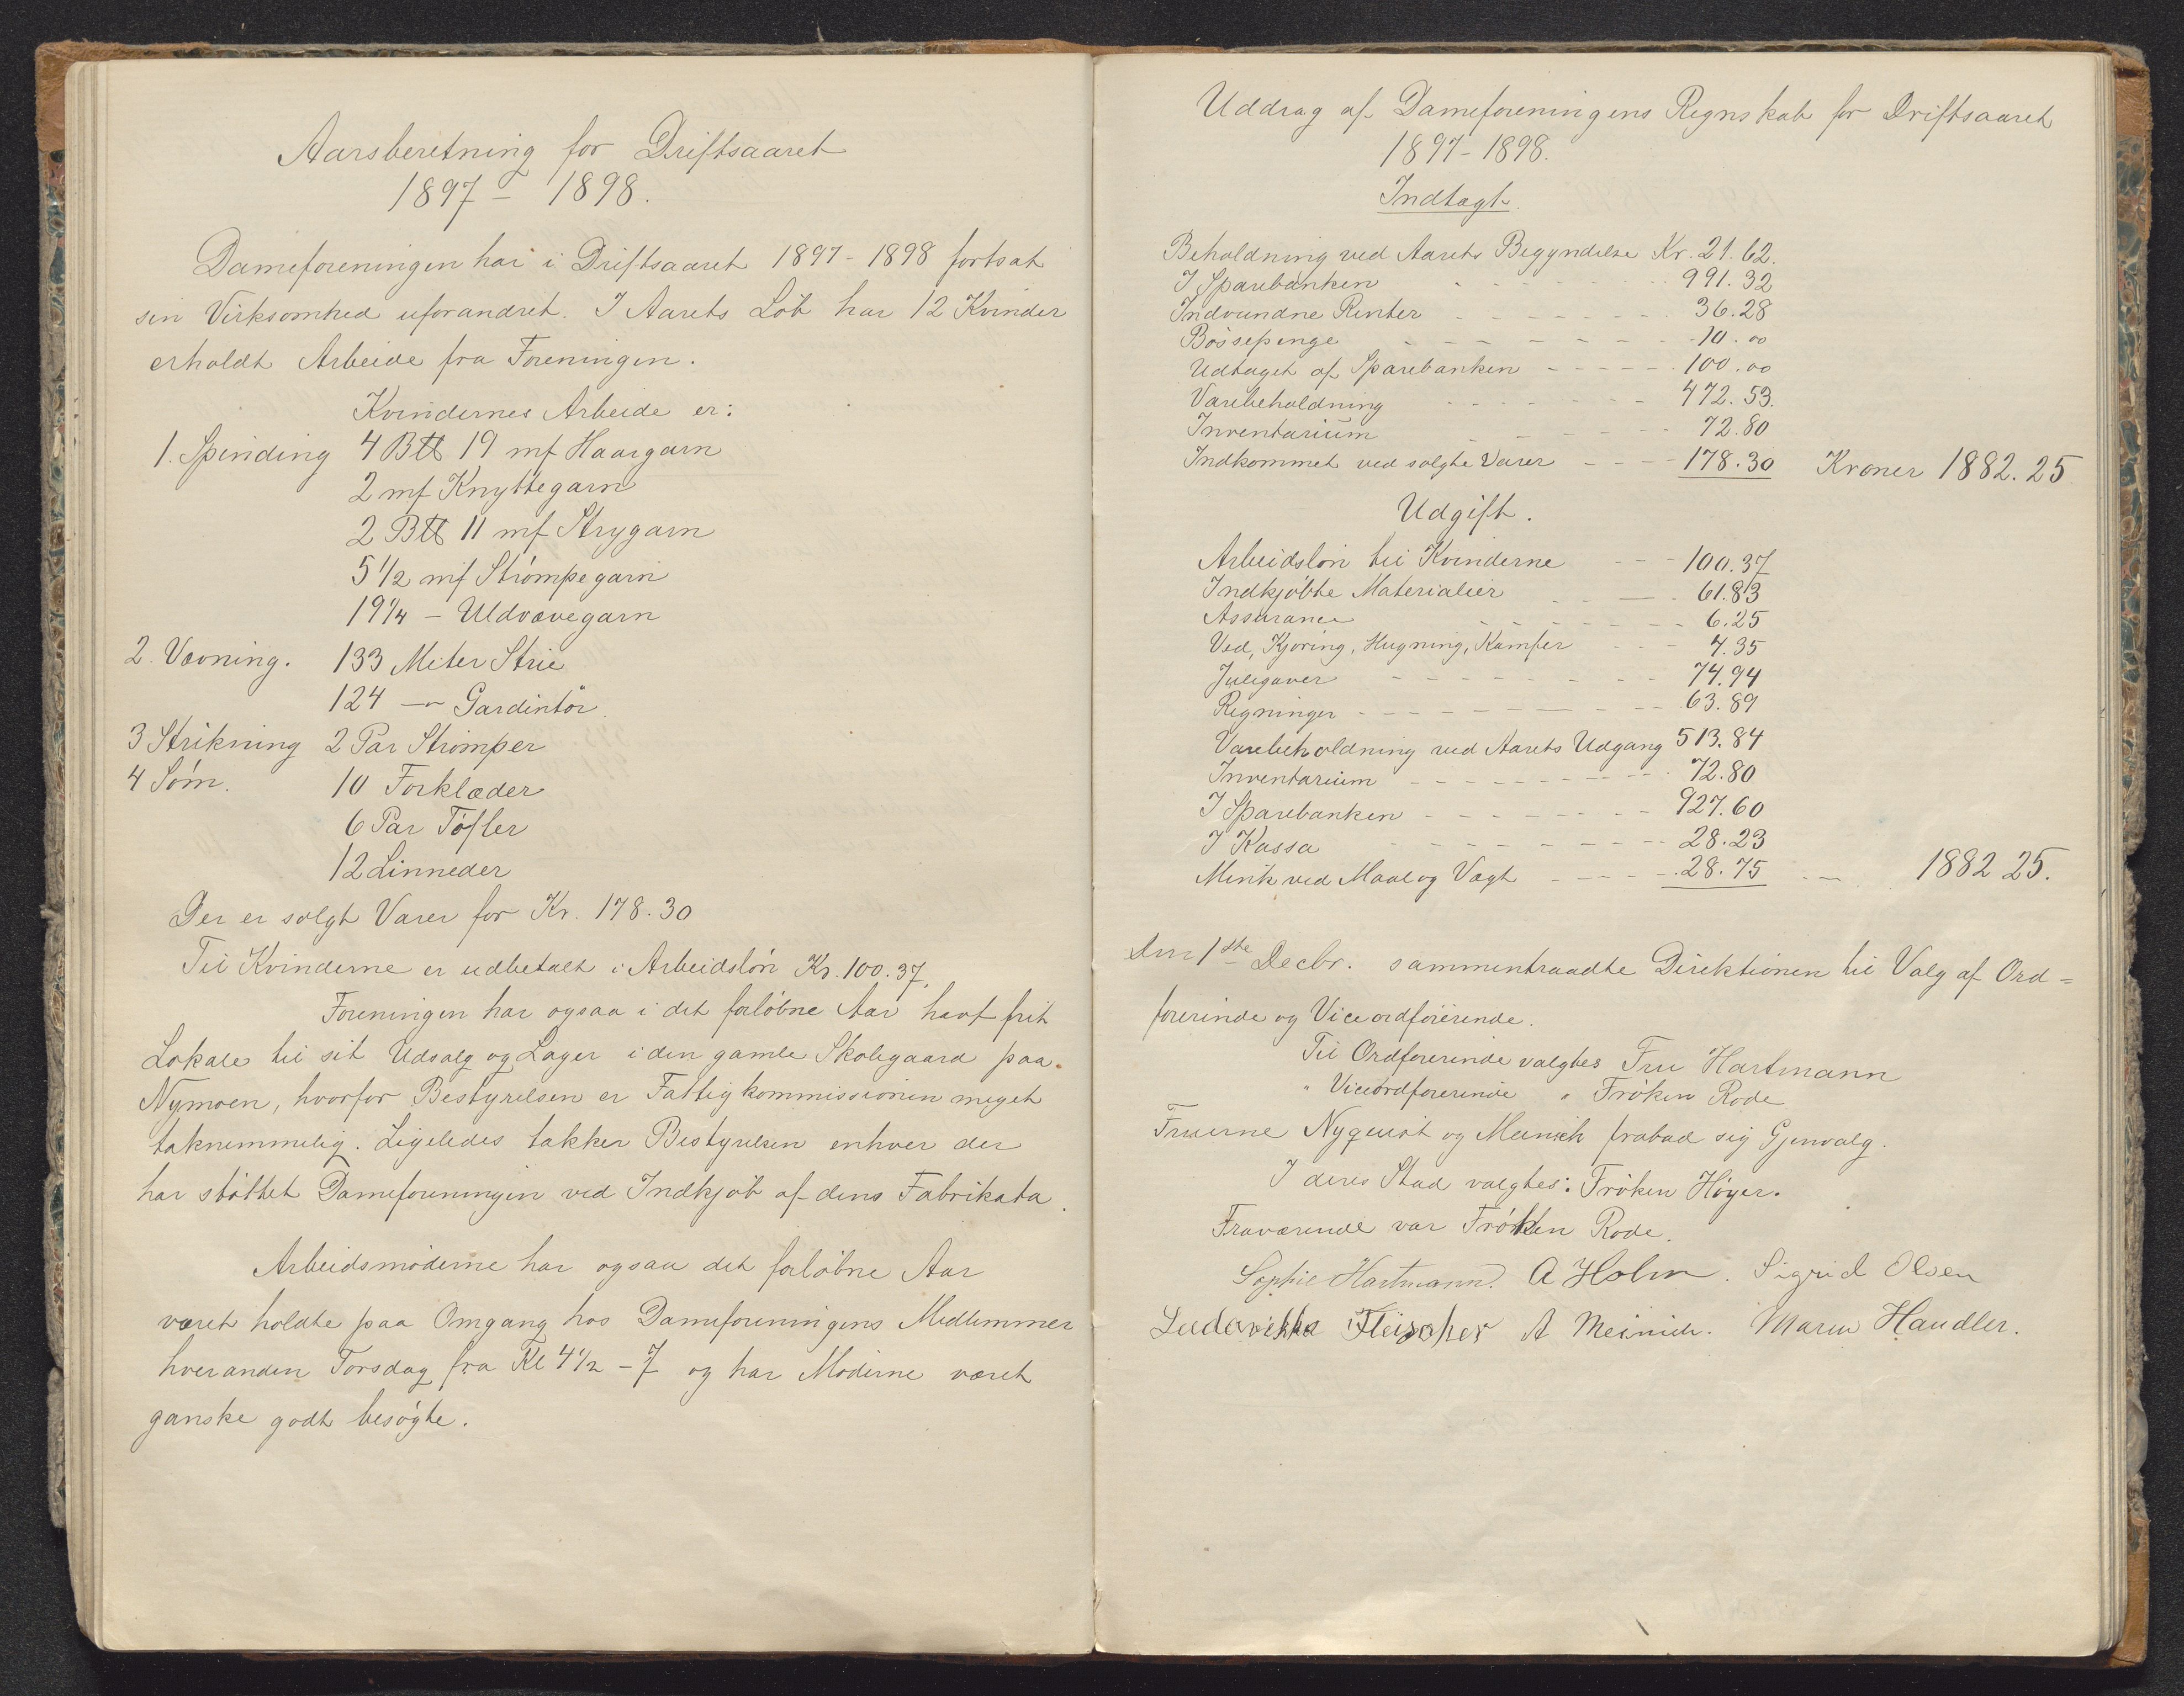 Aarsberetning for Driftsaaret
1897 - 1898.
Dameforeningen har i Driftsaaret 1897 - 1898 fortsat
sin Virksomhed uforandret. I Aarets Løb har 12 Kvinder
erholdt Arbeide fra Foreningen.
Kvindernes Arbeide er:
1. Spinding 4 B℔ 19 mf Haargarn
2 mf Knyttegarn
2 B℔ 11 mf Strygarn
5 1/2 mf Strømpegarn
19 1/4 - Uldvævegarn
2. Vævning. 133 Meter Strie
124 -"- Gardintøi.
3 Strikning 2 Par Strømper
4 Søm. 10 Forklæder
6 Par Tøfler
12 Linneder
Der er solgt Varer for Kr. 178.30
Til Kvinderne er udbetalt i Arbeidsløn Kr. 100.37.
Foreningen har ogsaa i det forløbne Aar havt frit
Lokale til sit Udsalg og Lager i den gamle Skolegaard paa
Nymoen, hvorfor Bestyrelsen er Fattigkommissionen meget
taknemmelig. Ligeledes takker Bestyrelsen enhver der
har støttet Dameforeningen ved Indkjøb af dens Fabrikata.
Arbeidsmøderne har ogsaa det forløbne Aar
været holdte paa Omgang hos Dameforeningens Medlemmer
hver anden Torsdag fra Kl 4 1/2 - 7 og har Møderne været
ganske godt besøgte.
Uddrag af Dameforeningens Regnskab for Driftsaaret
1897 - 1898.
Indtægt.
Beholdning ved Aarets Begyndelse Kr. 21.62.
I Sparebanken - - - - - 991.32
Indvundne Renter - - - - - 36.28
Bøssepenge - - - - - 10.00
Udtaget af Sparebanken - - - - - 100.00
Varebeholdning - - - - - 472.53.
Inventarium - - - - - 72.80
Indkommet ved solgte Varer - - - 178.30 Kroner 1882.25
Udgift.
Arbeidsløn til Kvinderne - - - 100.37
Indkjøbte Materialier - - - 61.83
Assurance - - - - - 6.25
Ved, Kjøring, Hugning, Kamfer - - - 4.35
Julegaver - - - - - 74.94
Regninger - - - - - 63.89
Varebeholdning ved Aarets Udgang 513.84
Inventarium - - - - - 72.80
I Sparebanken - - - - - 927.60
I Kassa - - - - - 28.23
Mink ved Maal og Vægt - - - - 28.75 - - 1882 25.
Den 1ste Decbr. sammentraadte Direktionen til Valg af Ord=
førerinde og Viceordførerinde.
Til Ordførerinde valgtes Fru Hartmann
" Viceordførerinde " Frøken Rode
Fruerne Nyquist og Meinich frabad sig Gjenvalg.
I deres Sted valgtes: Frøken Høyer.
Fraværende var Frøken Rode.
Sophie Hartmann. A Holm. Sigrid Olsen
Ludovikka Fleischer A Meinich. Maren Handler.